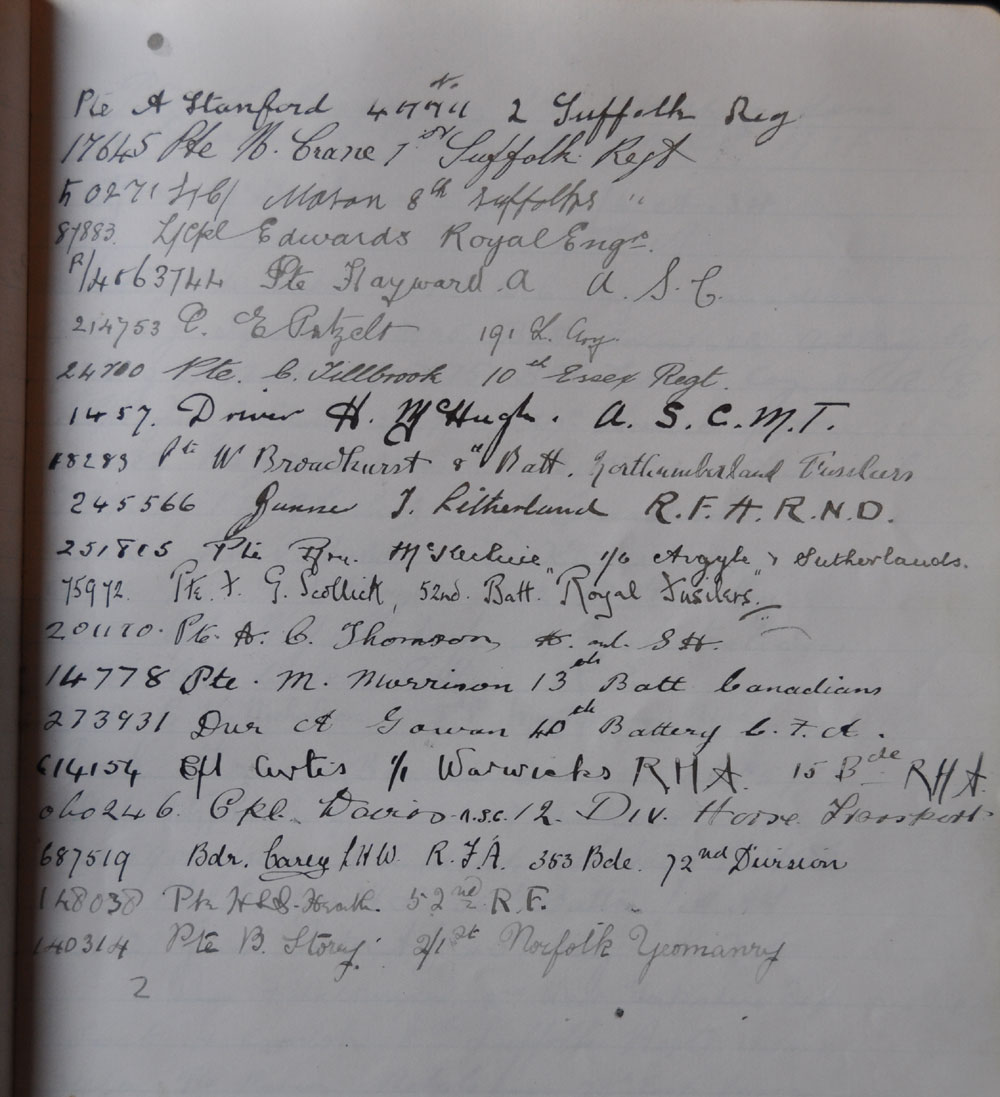 Pte A Stanford No. 2 Suffolk Reg
17645 Pte W. Crane 1st Suffolk Regt
50271 Mason 8th Suffolks "
87883. L/Cpl Edwards Royal Engrs.
Pte Hayward A A. S. C.
214753 C. E Patzelt 191 L. Coy.
24700 Pte. C. Tillbrook 10th Essex Regt.
1457. Driver H. McHugh. A. S. C. M. T.
18283 Pte W Broadhurst 8th Batt. Northumberland Fusiliers
245566 Gunner J. Litherland R. F. A. R. N. D.
251815 Pte McKechnie 1/6 Argyle & Sutherlands.
75972. Pte F. G. Scollick, 52nd. Batt. "Royal Fusilers."
201170. Pte. A. C. Thomson, A. and. S H.
14778 Pte. M. Morrison 13th Batt Canadians
273931 Dvr A Gowan 40th Battery C. F. A.
614154 Cpl Curtis 1/1 Warwicks R H A. 15 Bde R H A.
060246. Cpl. Davies A.S.C. 12. Div. Horse Transport
687519 Bdr. Carey L H W. R. F. A. 353 Bde. 72nd Division
148038 Pte Heath. 52nd R. F.
140314 Pte B. Storey. 2/1st Norfolk Yeomanry
2